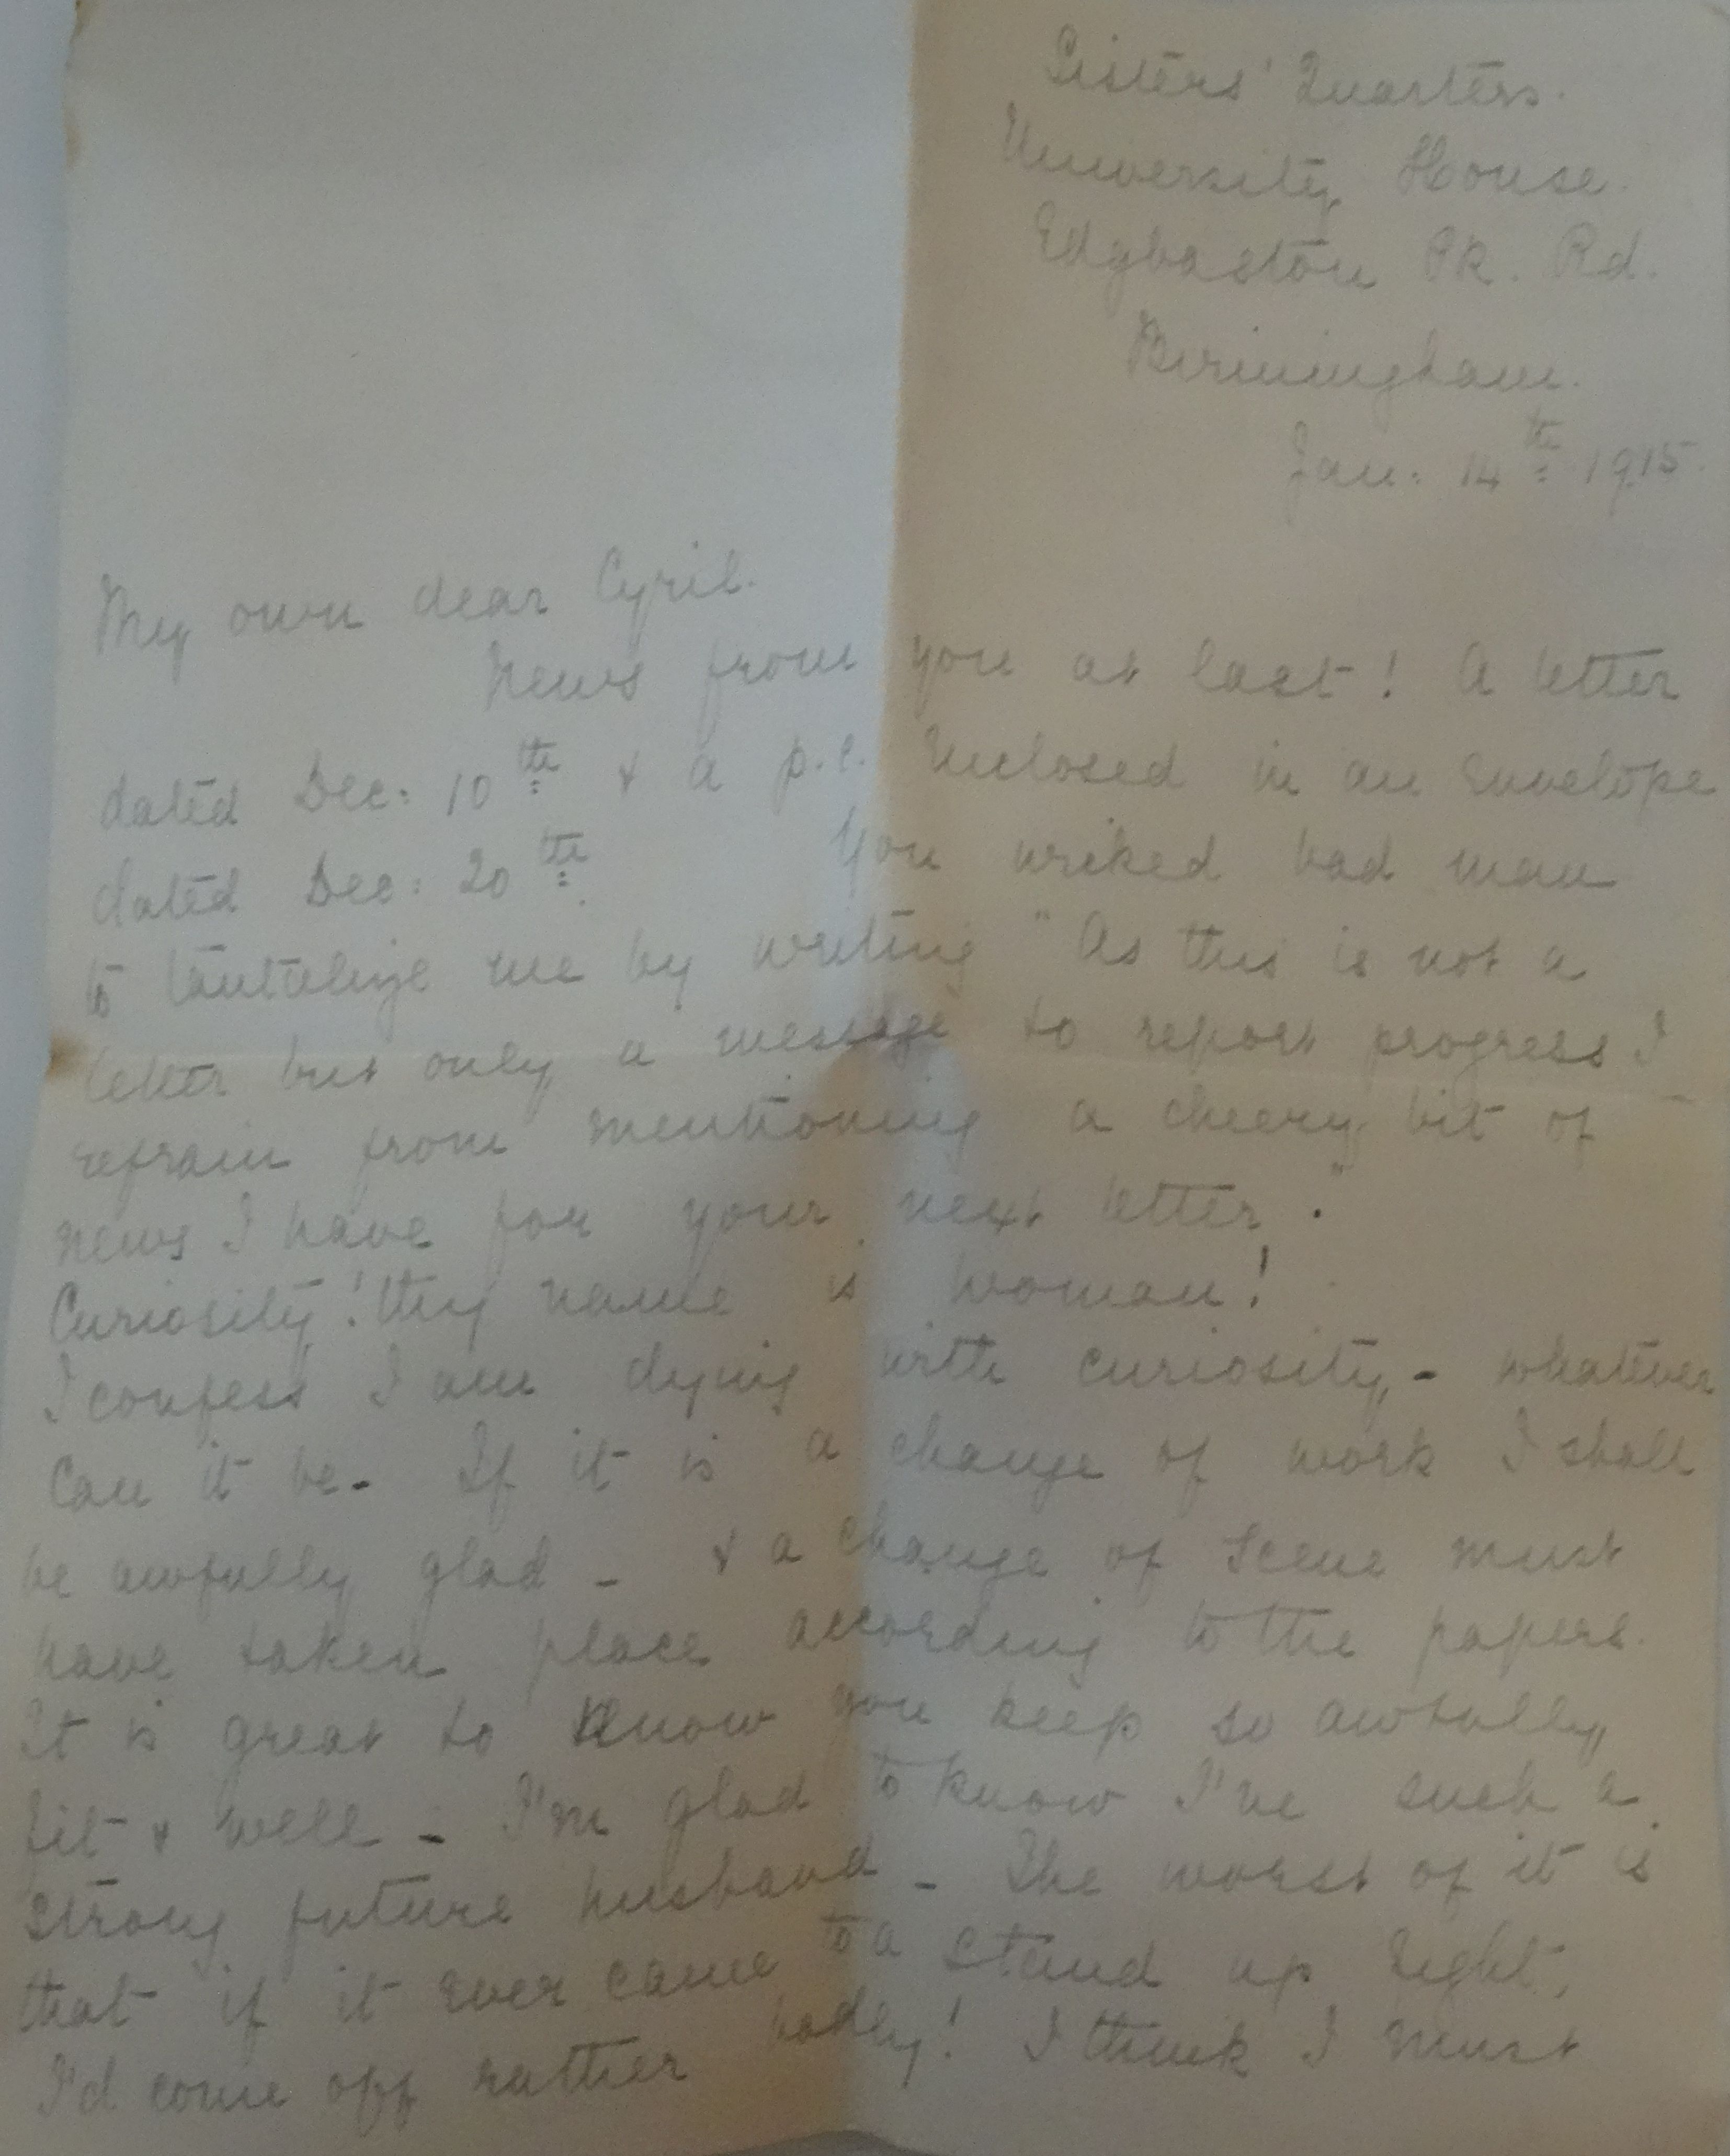 Sisters' Quarters.
University House.
Edgbaston Pk. Rd.
Birmingham.
Jan: 14th 1915.
My own dear Cyril.
News from you at last! A letter
dated Dec: 10th & a p.c. enclosed in an envelope
dated Dec: 20th. You wicked bad man
to tantalize me by writing "As this is not a
letter but only a message to report progress I
refrain from mentioning a cheery bit of
news I have for your next letter."
Curiosity! thy name is woman!
I confess I am dying with curiosity, - whatever
can it be - If it is a change of work I shall
be awfully glad - & a change of scene must
have taken place according to the papers.
It is great to know you keep so awfully
fit & well - I'm glad to know I've such a
strong future husband - The worst of it is
that if it ever came to a stand up fight,
I'd come off rather badly! I think I must